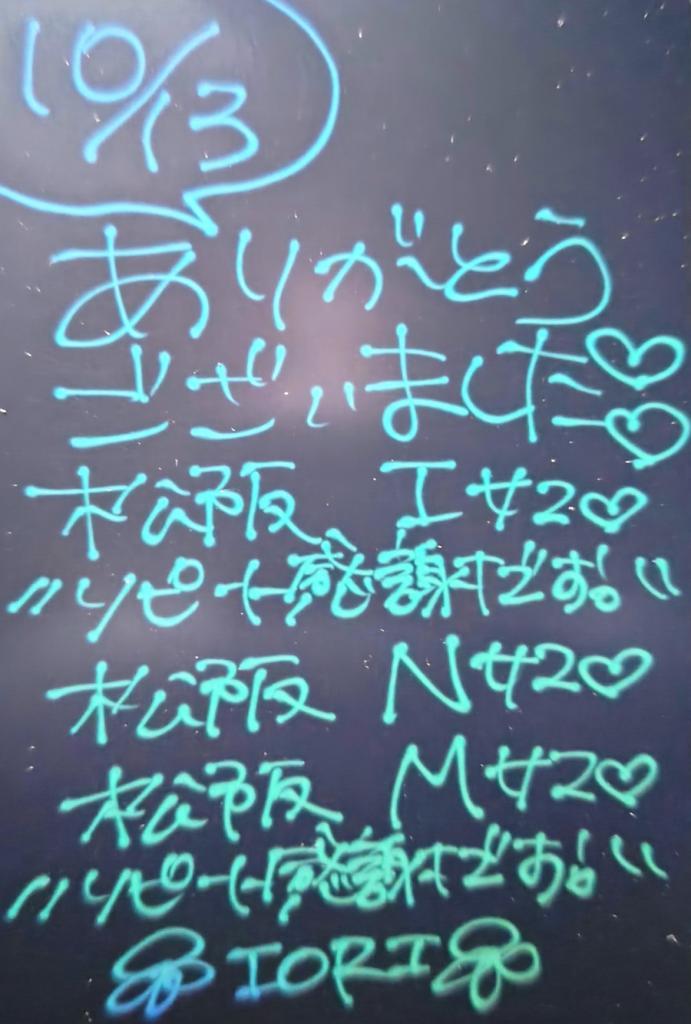 10/13
ありがとう
ございました♡♡
松阪 Iサン♡
〃リピート感謝です!〃
松阪 Nサン♡
松阪 Mサン♡
〃リピート感謝です!〃
IORI